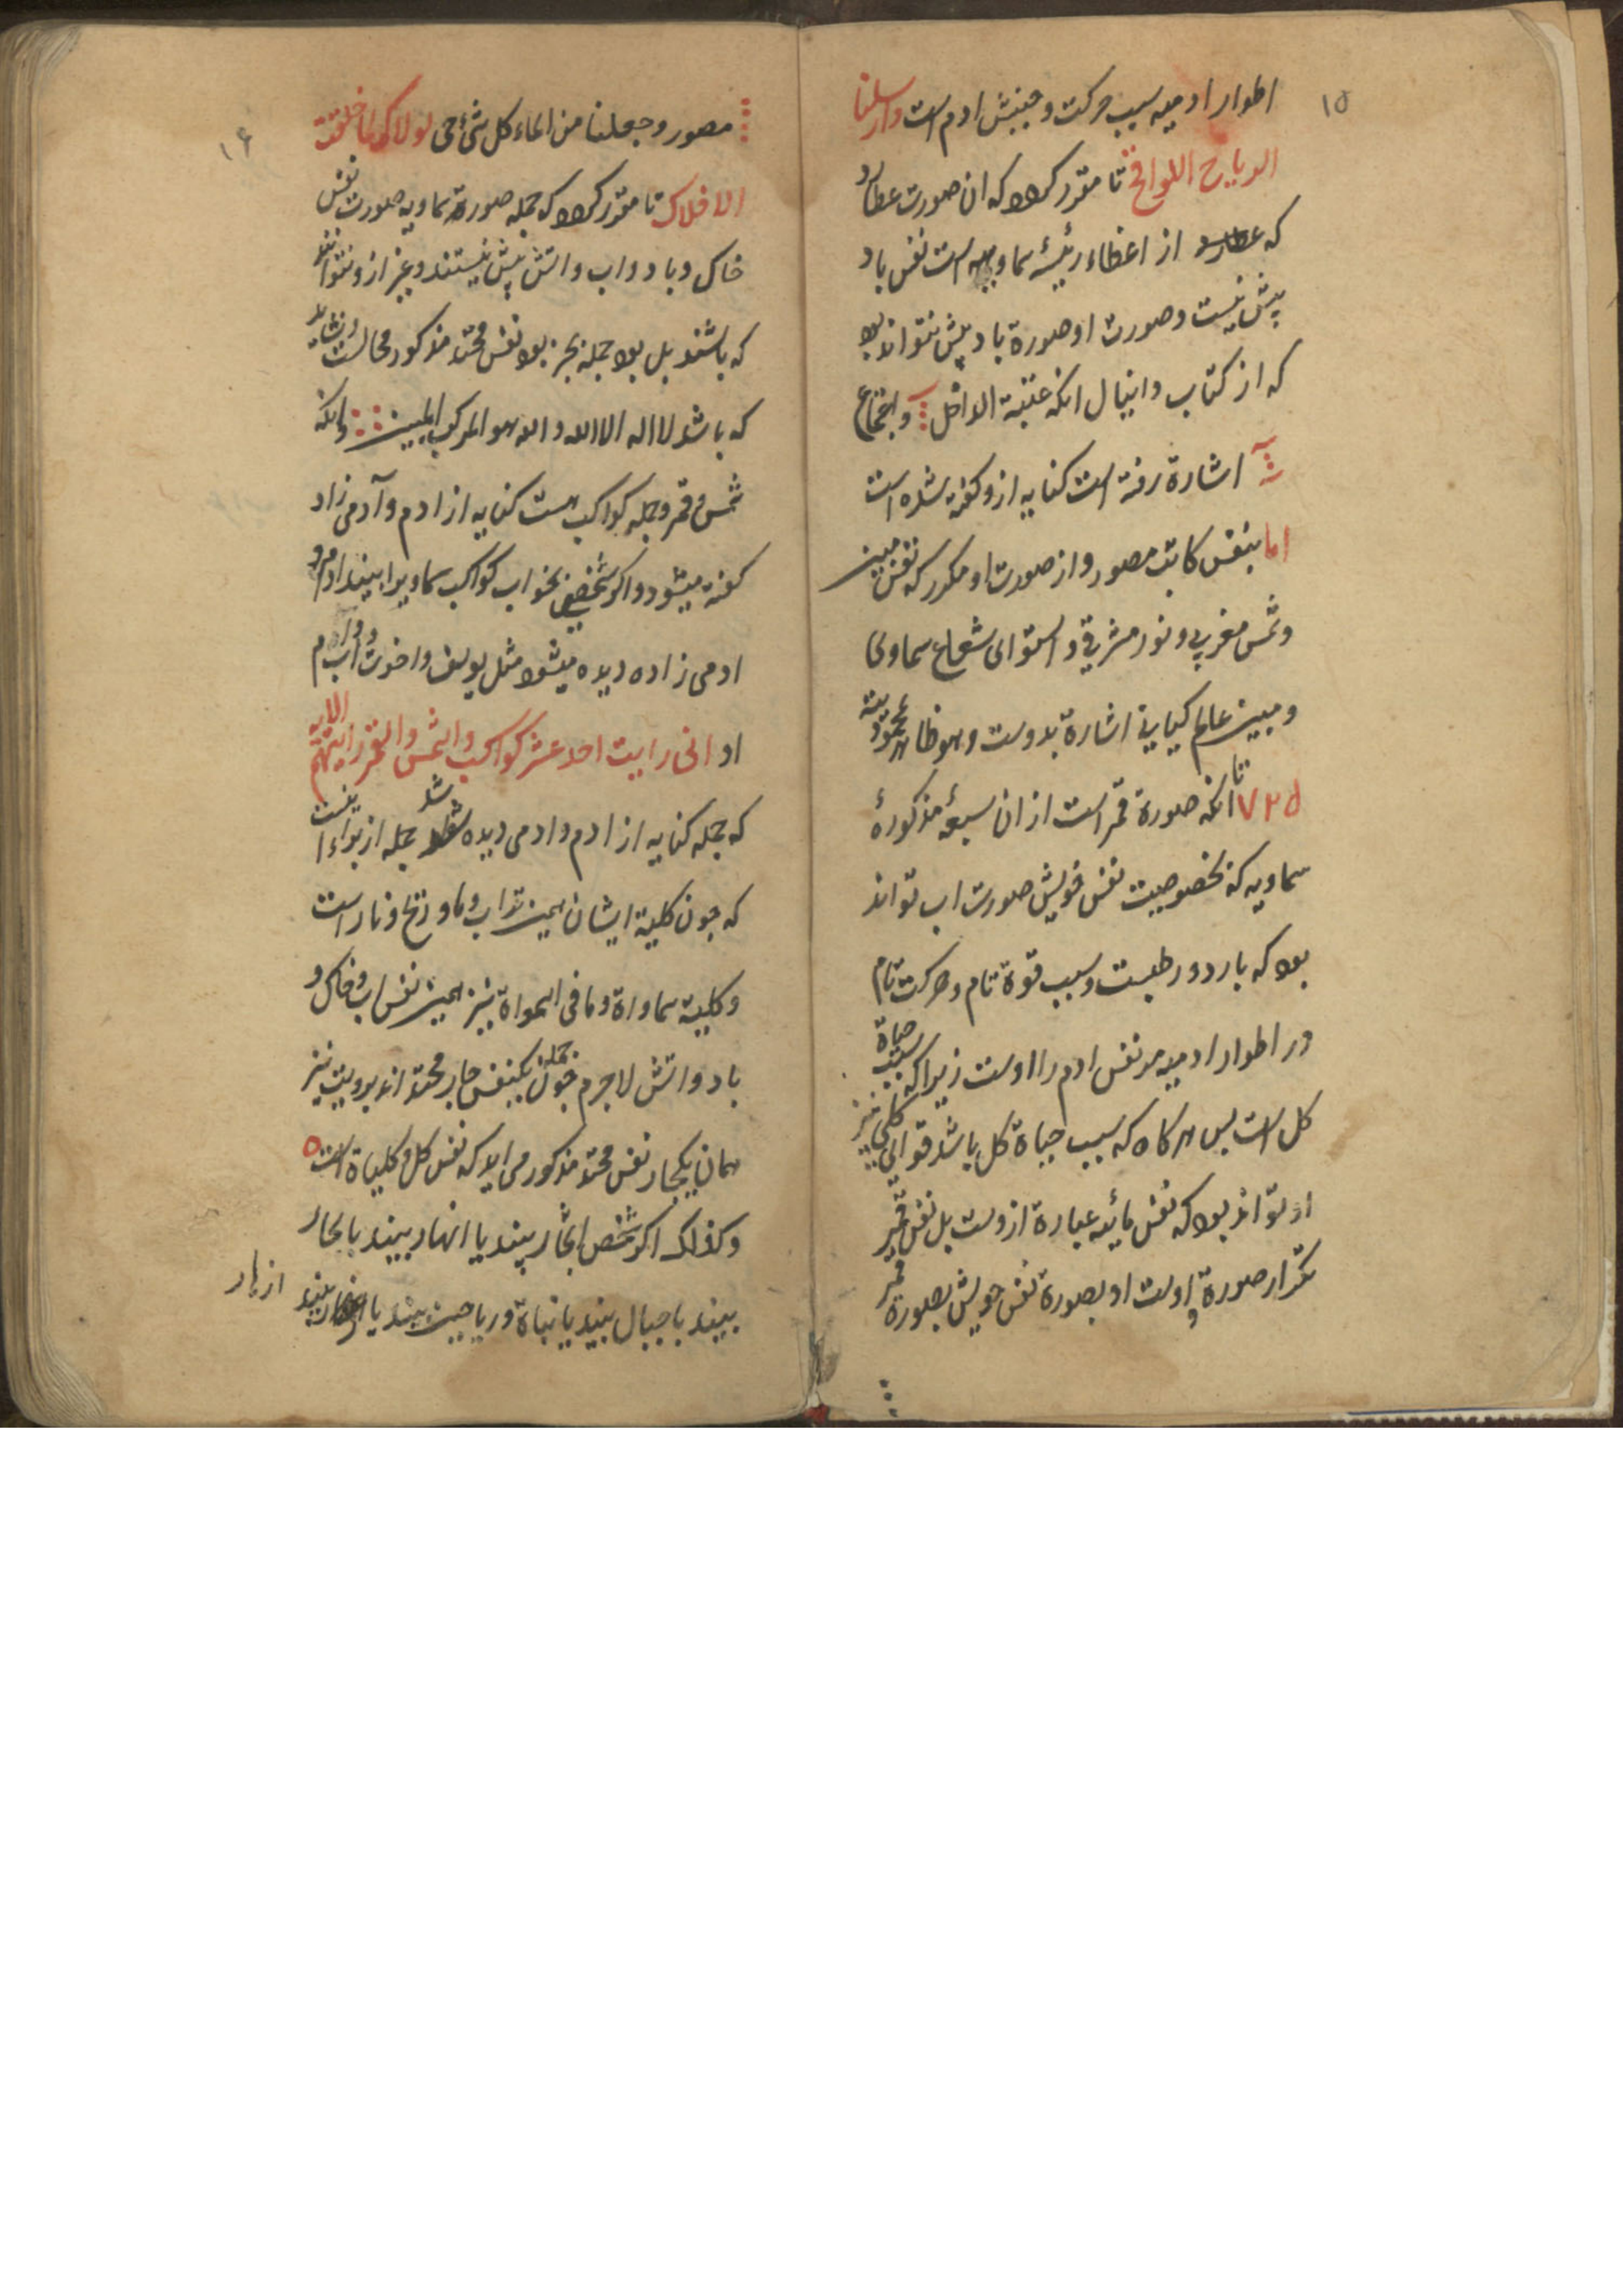 ١٥
اطوار ادمیه سبب حرکت و جنبش ادم است وارسلنا
الریاح اللواقح تا مقرر کردد که ان صورت عطارد
که عطارد از اعظاء رئیسهٔ سماویه است نفس باد
پیش نیست و صورت او صورة باد پیش نتواند بود
که از کتاب دانیال انکه عتبة الداخل و اجتماع
اشارة رفته است کنایه ازو کفته شده است
اما بنفس کاتب مصور و از صورت او مکرر که نفس مبین
و شمس مغربی و نور مشرقی و استوای شعاع سماوی
و مبین عالم کیانی اشارة بدوست و هو ظاهر
٧٢٥ تا انکه صورة قمر است از ان سبعهٔ مذکورهٔ
سماویه که بخصوصیت نفس خویش صورت اب تواند
بود که بارد و رطبست و سبب قوة تام و حرکت تام
در اطوار ادمیه مر نفس ادم را اوست زیرا که سبب حیاة
کل است پس هر کاه که سبب حیاة کل باشد قوای کلی نیز
او تواند بود که نفس مائیه عبارة ازوست بل نفس قمر
تکرار صورة اوست او بصورة نفس خویش بصورة قمر
١٦
مصور و جعلنا من الماء کل شئ حی لولاک لما خلقت
الافلاک تا مقرر کردد که جمله صورة سماویه صورت نفس
خاک و باد و اب و اتش پیش نیستند و غیر ازو نتوانند
که باشند بل بود جمله بجز بود نفس مذکور محالست و نشاید
که باشد لا اله الا الله و الله هو المرکب المبین و انکه
شمس و قمر و جمله کواکب هست کنایه از ادم و آدمی زاد
کفته میشود و اکر شخصی بخواب کواکب سماویرا بیند ادم و
ادمی زاده دیده میشود مثل یوسف و اخوت
او انی رایت احد عشر کواکب والشمس والقمر رایتهم الایه
که جمله کنایه از ادم و ادمی دیده شد جمله از براء انست
که چون کلیة ایشان همین تراب و ماء و ریح و نار است
و کلیة سماواة و ما فی السمواة نیز همین نفس اب و خاک و
باد و اتش لاجرم چون جمله یکنفس اند برویت نیز
همان نفس مذکور می اید که نفس کل و کلیاة است
و کذالک اکر شخص اشجار بیند یا انهار بیند یا بحار
بیند یا جبال بیند یا نباة و ریاحین بیند یا بیند
ازهار